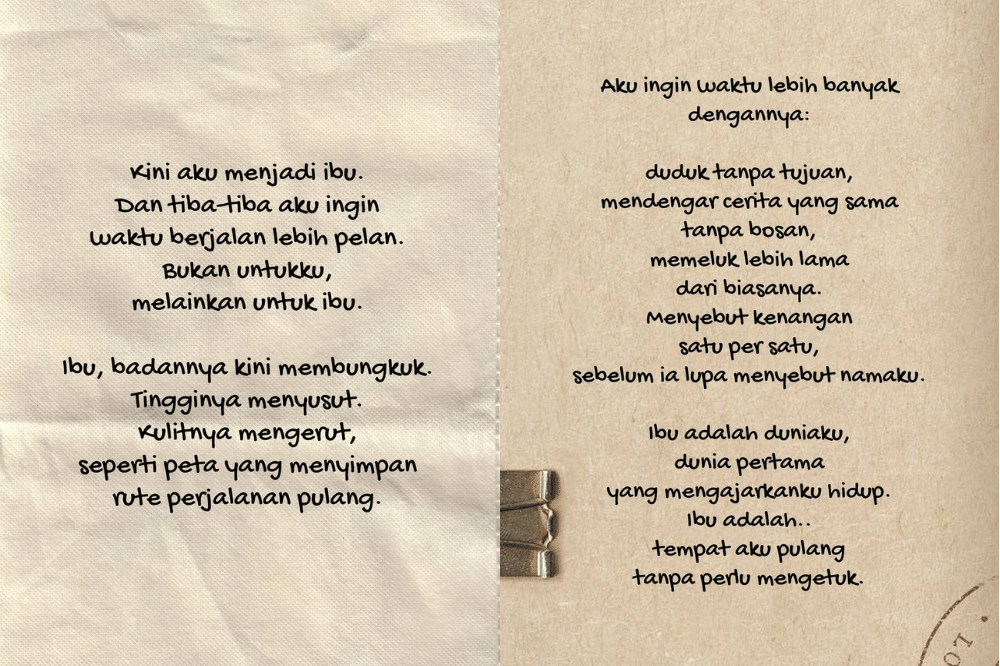 Kini aku menjadi ibu.
Dan tiba-tiba aku ingin
waktu berjalan lebih pelan.
Bukan untukku,
melainkan untuk ibu.
Ibu, badannya kini membungkuk.
Tingginya menyusut.
Kulitnya mengerut,
seperti peta yang menyimpan
rute perjalanan pulang.
Aku ingin waktu lebih banyak
dengannya:
duduk tanpa tujuan,
mendengar cerita yang sama
tanpa bosan,
memeluk lebih lama
dari biasanya.
Menyebut kenangan
satu per satu,
sebelum ia lupa menyebut namaku.
Ibu adalah duniaku,
dunia pertama
yang mengajarkanku hidup.
Ibu adalah..
tempat aku pulang
tanpa perlu mengetuk.